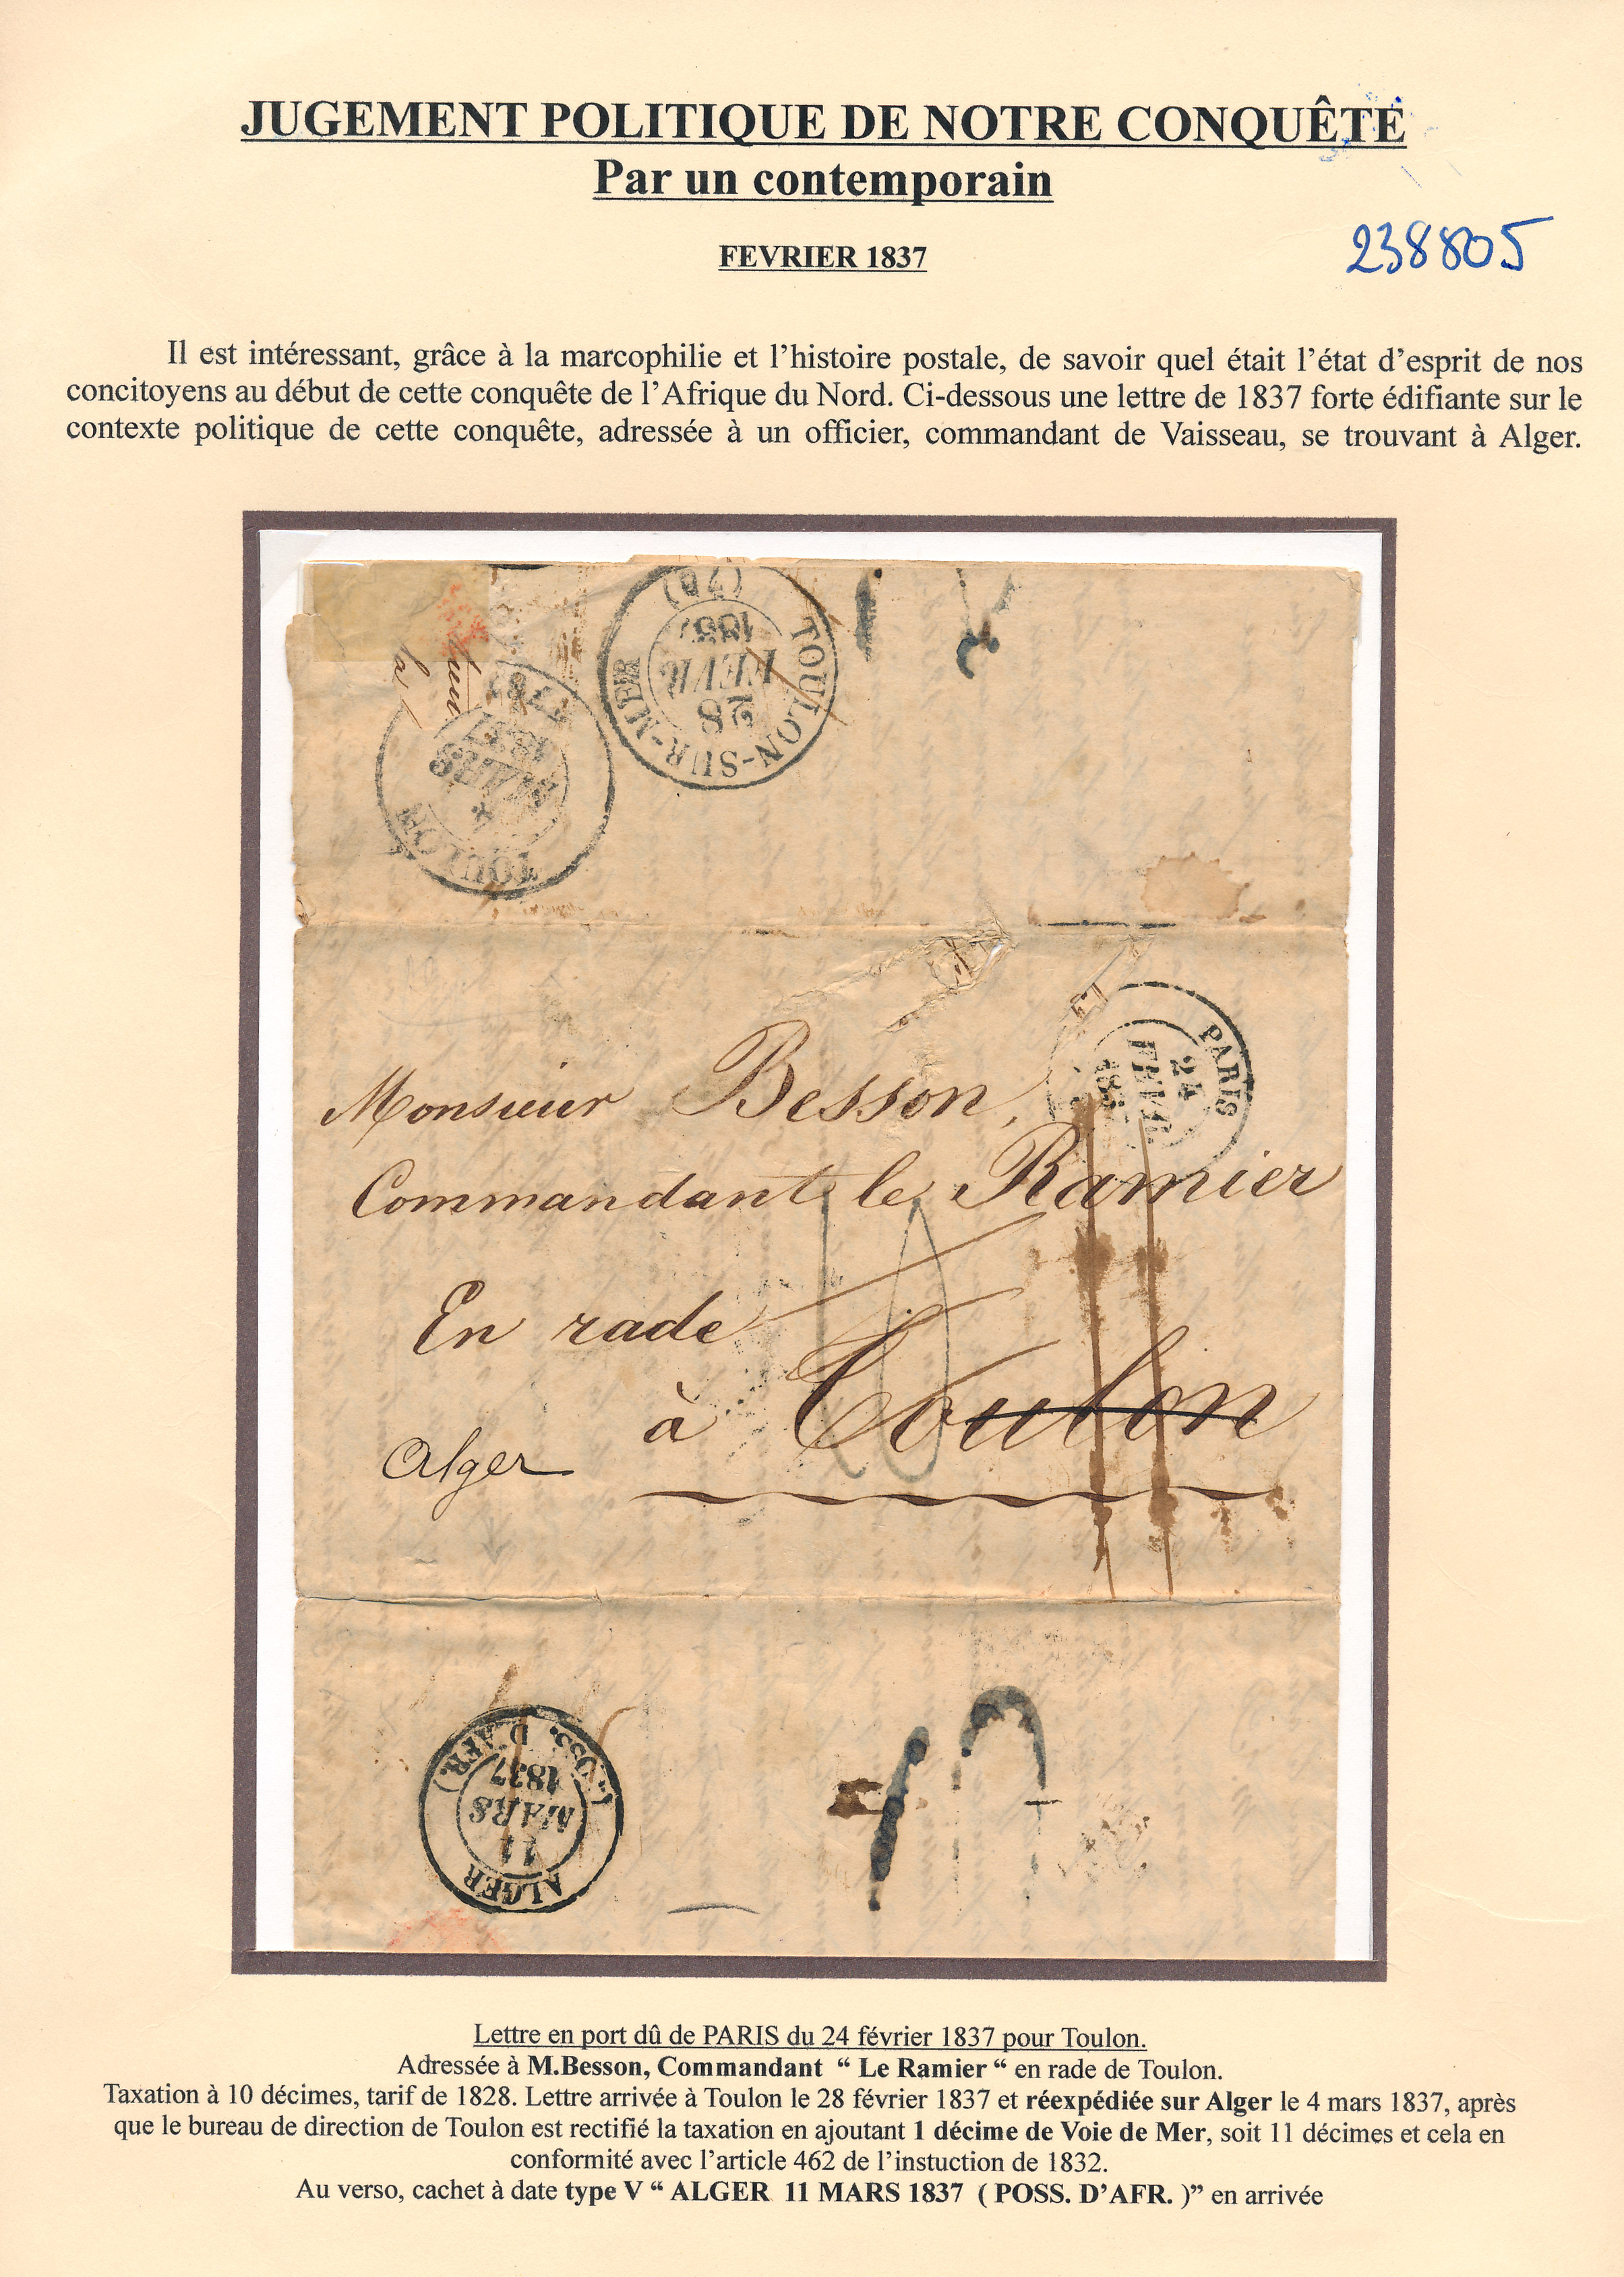 JUGEMENT POLITIQUE DE NOTRE CONQUÊTE
Par un contemporain
FEVRIER 1837
238805
Il est intéressant, grâce à la marcophilie et l'histoire postale, de savoir quel était l'état d'esprit de nos
concitoyens au début de cette conquête de l'Afrique du Nord. Ci-dessous une lettre de 1837 forte édifiante sur le
contexte politique de cette conquête, adressée à un officier, commandant de Vaisseau, se trouvant à Alger.
TOULON-SUR-MER
28
FEVR
1837
(78)
TOULON
4
MARS
1837
(78)
PARIS
24
FEVR
183
Monsieur Besson,
Commandant le Ramier
En rade
à Toulon
Alger
10
ALGER
11
MARS
1837
(POSS. D'AFR.)
Lettre en port dû de PARIS du 24 février 1837 pour Toulon.
Adressée à M.Besson, Commandant “ Le Ramier “ en rade de Toulon.
Taxation à 10 décimes, tarif de 1828. Lettre arrivée à Toulon le 28 février 1837 et réexpédiée sur Alger le 4 mars 1837, après
que le bureau de direction de Toulon est rectifié la taxation en ajoutant 1 décime de Voie de Mer, soit 11 décimes et cela en
conformité avec l'article 462 de l'instuction de 1832.
Au verso, cachet à date type V “ ALGER 11 MARS 1837 ( POSS. D'AFR. )” en arrivée